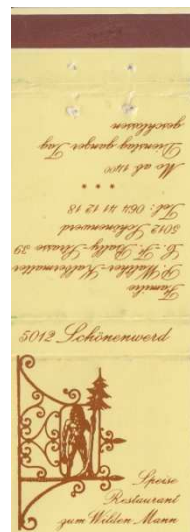 Familie
P. Walther-Kaltermatter
C.-F. Bally-Strasse 35
5012 Schönenwerd
Tel: 064 41 12 18
* * *
Mo ab 14.00
Dienstag ganzer Tag
geschlossen
5012 Schönenwerd
Speise
Restaurant
zum Wilden Mann